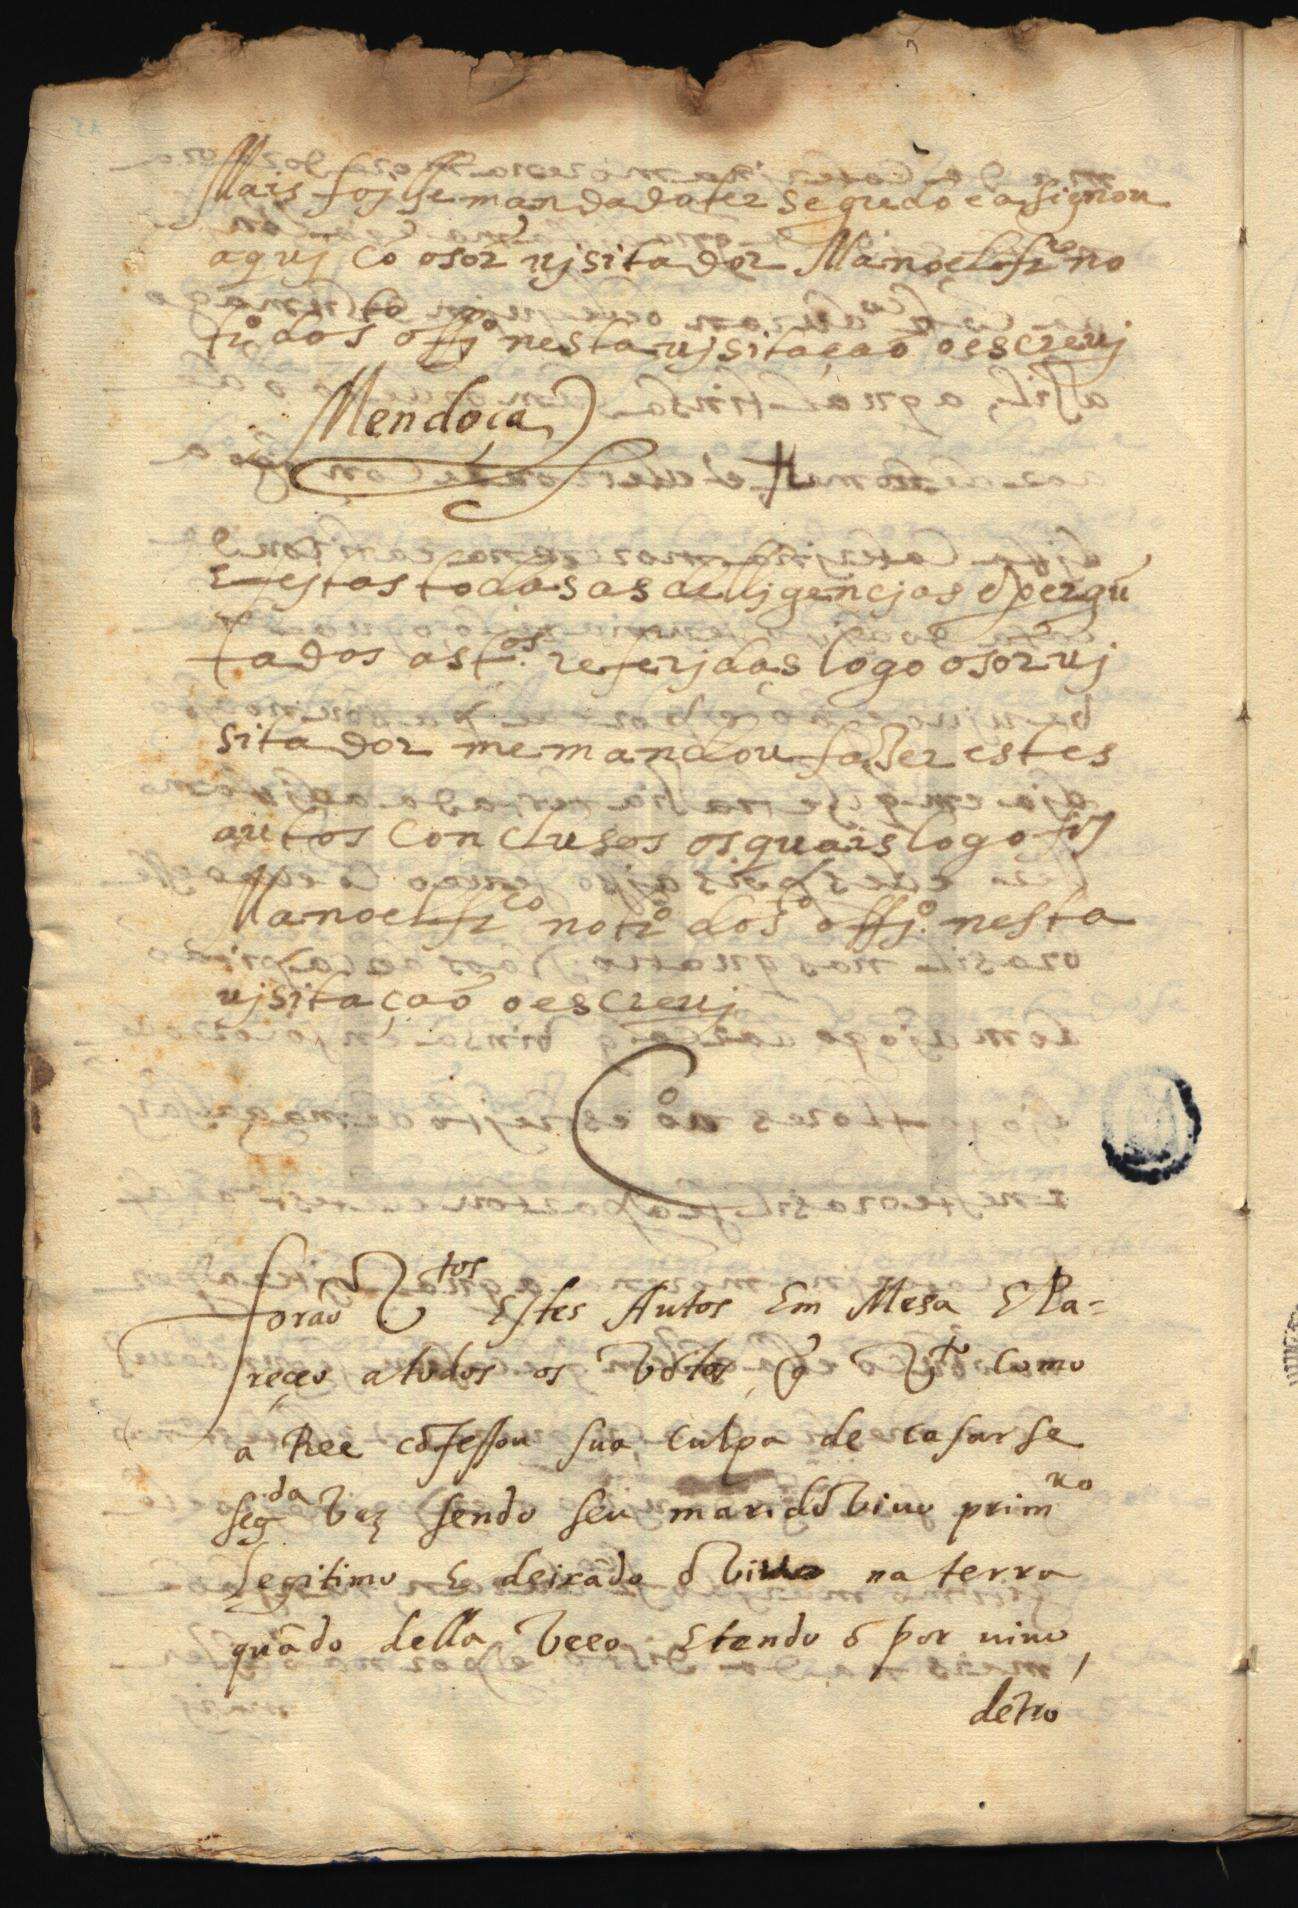 Mais foj lhe mandado ter segredo e asignou
aquj cõ o sõr ujsitador Manoel frco no
trõ do sto offjo nesta ujsitação o escrevj
Mendoça
E feitas todas as delligencjas e pergũ
tados as tos referjdas logo o sõr uj
sitador me mandou fazer estes
autos conclusos os quais logo fiz
Manoel frco notrõ do sto offjo nesta
ujsitação o escrevj
Clo
forão vtos Estes Autos Em Mesa E Pa=
receo a todos os votos q̃ vto como
a Ree cõfessou sua culpa de casarse
segda vez sendo seu marido vivo primro
legitimo E deixãdo o vivo na terra
quãdo della veeo E tendo o por vivo,
detro